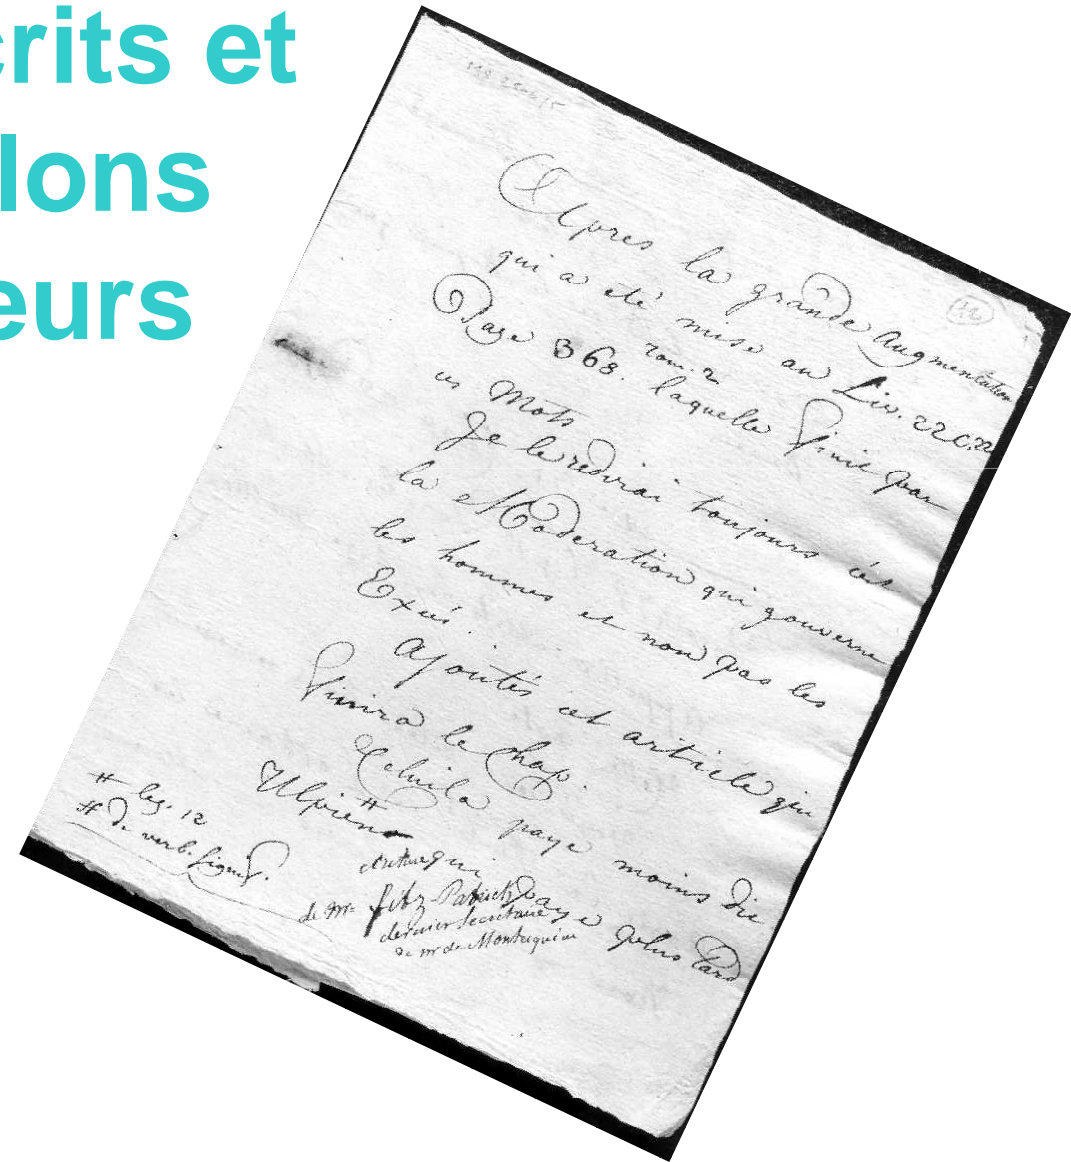 crits et
lons
eurs
12
Apres la grande augmentation
qui a eté mise au Liv. 22 C. 22
Page 368. tom. 2 laquelle finit par
ces Mots
Je le redirai toujours cest
la Moderation qui gouverne
les hommes et non pas les
Excés.
Ajoutés cet article qui
finira le Chap.
Celui la paye moins dit
Ulpien # qui paye plus tard
# leg. 12
# De verb. signif.
de mr fitz-Patrick
dernier secretaire
de mr de Montesquieu